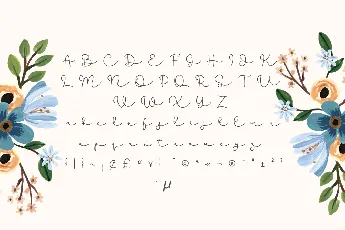 A B C D E F G H I J K
L M N O P Q R S T U
V W X Y Z
a b c d e f g h i j k l m n
o p q r s t u v w x y z